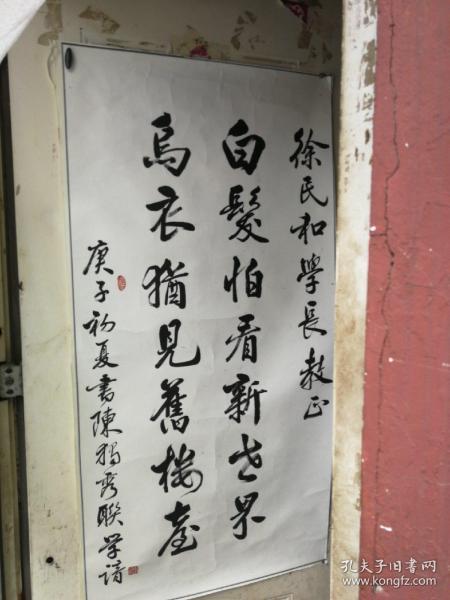 徐民和學長教正
白髮怕看新世界
烏衣猶見舊樓臺
庚子初夏書陳獨秀聯 學諳
孔夫子旧书网
www.kongfz.com